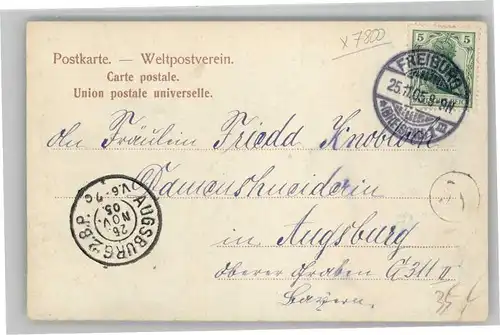 x 7800
Postkarte. — Weltpostverein.
Carte postale.
Union postale universelle.
5 5
FREIBURG
25.11.05.8-9N.
(BREISGAU)
An Fräulein Frieda Knobloch
Damenshneiderin
in Augsburg
Oberer Graben G 311 II
Bayern.
AUGSBURG 2.B.P.
26
NOV.
05